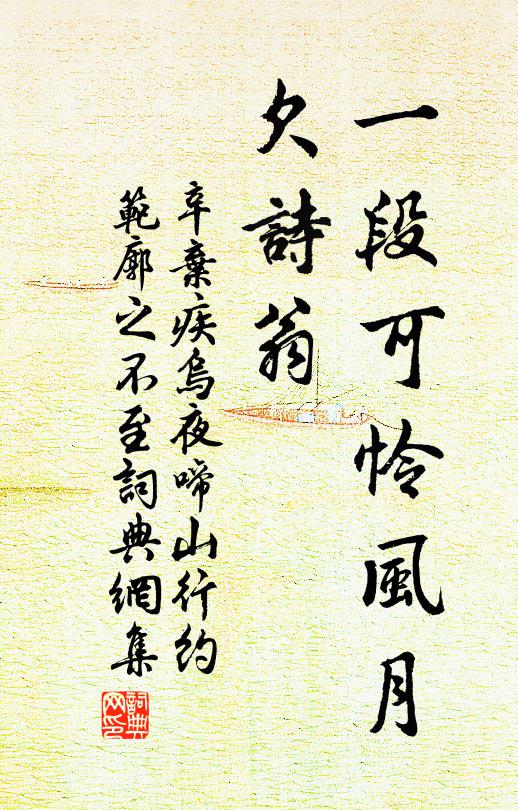 一段可怜風月
欠詩翁
辛棄疾烏夜啼山行约
範廓之不至詞典網集
詞典网印